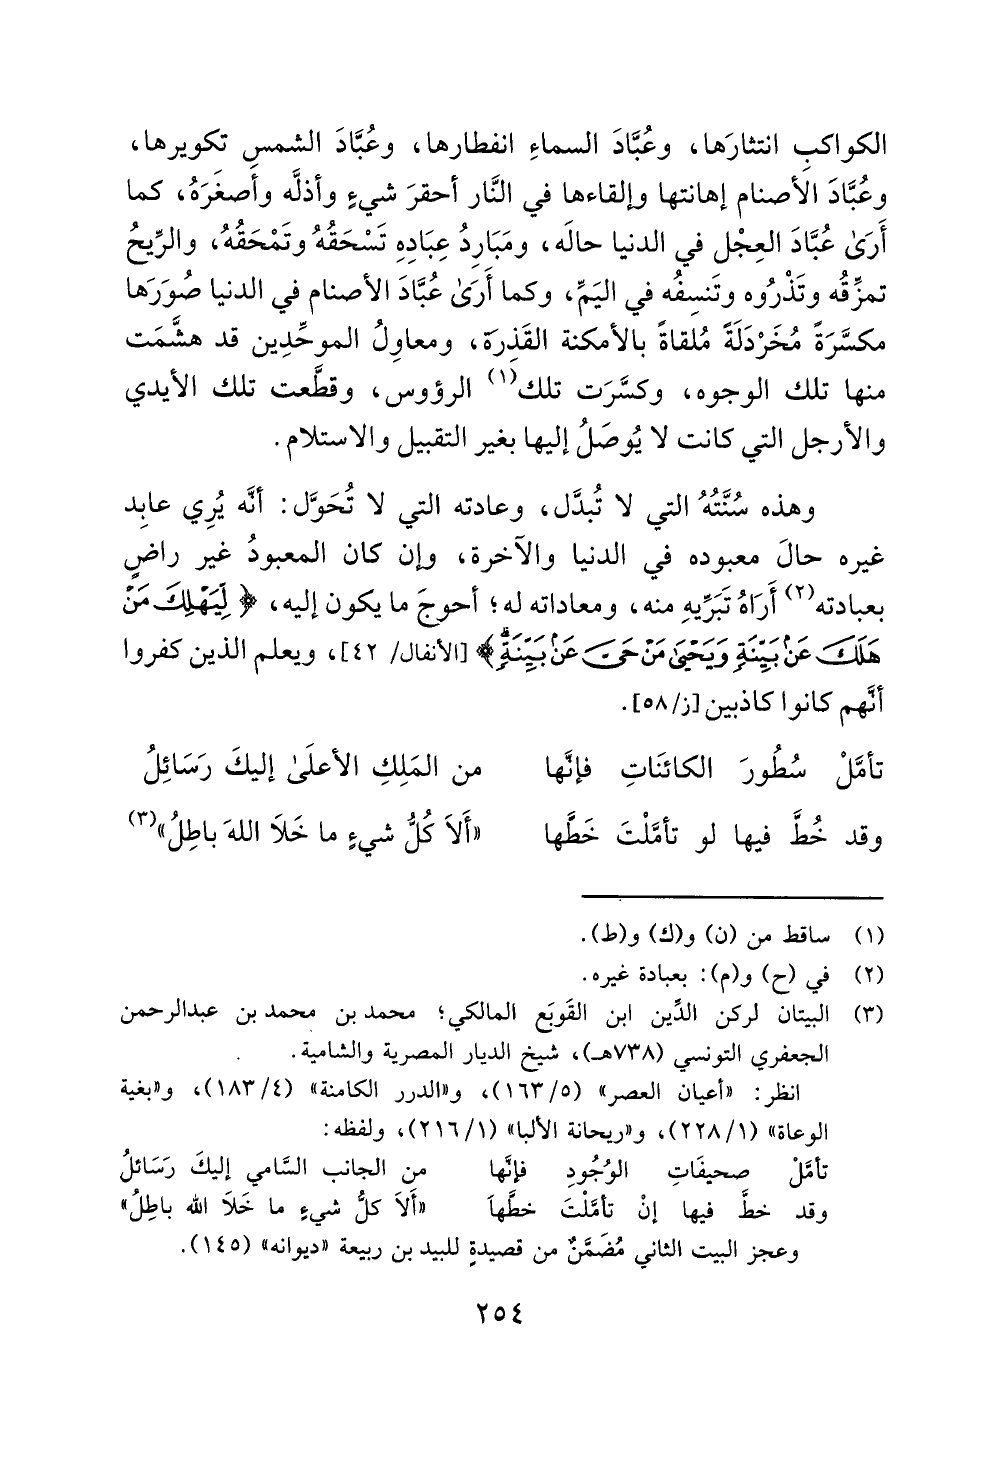 الكواكبِ انتثارَها، وعُبَّادَ السماءِ انفطارها، وعُبَّادَ الشمسِ تكويرها،
وعُبَّادَ الأصنام إهانتها وإلقاءها في النَّار أحقرَ شيءٍ وأذلَّه وأصغَرَهُ، كما
أَرَىٰ عُبَّادَ العِجْل في الدنيا حالَه، ومَبَارِدُ عِبَادِهِ تَسْحَقُهُ وتَمْحَقُهُ، والرِّيحُ
تمزِّقُه وتَذْرُوه وتَنسِفُه في اليَمِّ، وكما أَرَىٰ عُبَّادَ الأصنام في الدنيا صُوَرَها
مكسَّرَةً مُخَرْدَلَةً مُلقاةً بالأمكنة القَذِرَة، ومعاوِلُ الموحِّدِين قد هشَّمَت
منها تلك الوجوه، وكسَّرَت تلك(١) الرؤوس، وقطَّعت تلك الأيدي
والأرجل التي كانت لا يُوصَلُ إليها بغير التقبيل والاستلام.
وهذه سُنَّتُهُ التي لا تُبدَّل، وعادته التي لا تُحَوَّل: أنَّه يُرِي عابِد
غيره حالَ معبوده في الدنيا والآخرة، وإن كان المعبودُ غير راضٍ
بعبادته(٢) أَرَاهُ تَبَرِّيهِ منه، ومعاداته له؛ أحوجَ ما يكون إليه، ﴿لِّيَهْلِكَ مَنْ
هَلَكَ عَنۢ بَيِّنَةٍ وَيَحْيَىٰ مَنْ حَىَّ عَنۢ بَيِّنَةٍۗ﴾ [الأنفال/ ٤٢]، ويعلم الذين كفروا
أنَّهم كانوا كاذبين [ز/٥٨].
تأمَّلْ سُطُورَ الكائنَاتِ فإنَّها من المَلِكِ الأعلَىٰ إليكَ رَسَائِلُ
وقد خُطَّ فيها لو تأمَّلْتَ خَطَّها «أَلاَ كُلُّ شيءٍ ما خَلَا اللهَ باطِلُ»(٣)
(١) ساقط من (ن) و(ك) و(ط).
(٢) في (ح) و(م): بعبادة غيره.
(٣) البيتان لركن الدِّين ابن القَوبَع المالكي؛ محمد بن محمد بن عبدالرحمن
الجعفري التونسي (٧٣٨هـ)، شيخ الديار المصرية والشامية.
انظر: «أعيان العصر» (٥/ ١٦٣)، و«الدرر الكامنة» (٤/ ١٨٣)، و«بغية
الوعاة» (١/ ٢٢٨)، و«ريحانة الألبا» (١/ ٢١٦)، ولفظه:
تأمَّلْ صحيفَاتِ الوُجُودِ فإنَّها من الجانب السَّامي إليكَ رَسَائلُ
وقد خطَّ فيها إنْ تأمَّلْتَ خطَّهاَ «أَلاَ كلُّ شيءٍ ما خَلَا الله باطِلُ»
وعجز البيت الثاني مُضَمَّنٌ من قصيدةٍ للبيد بن ربيعة «ديوانه» (١٤٥).
٢٥٤